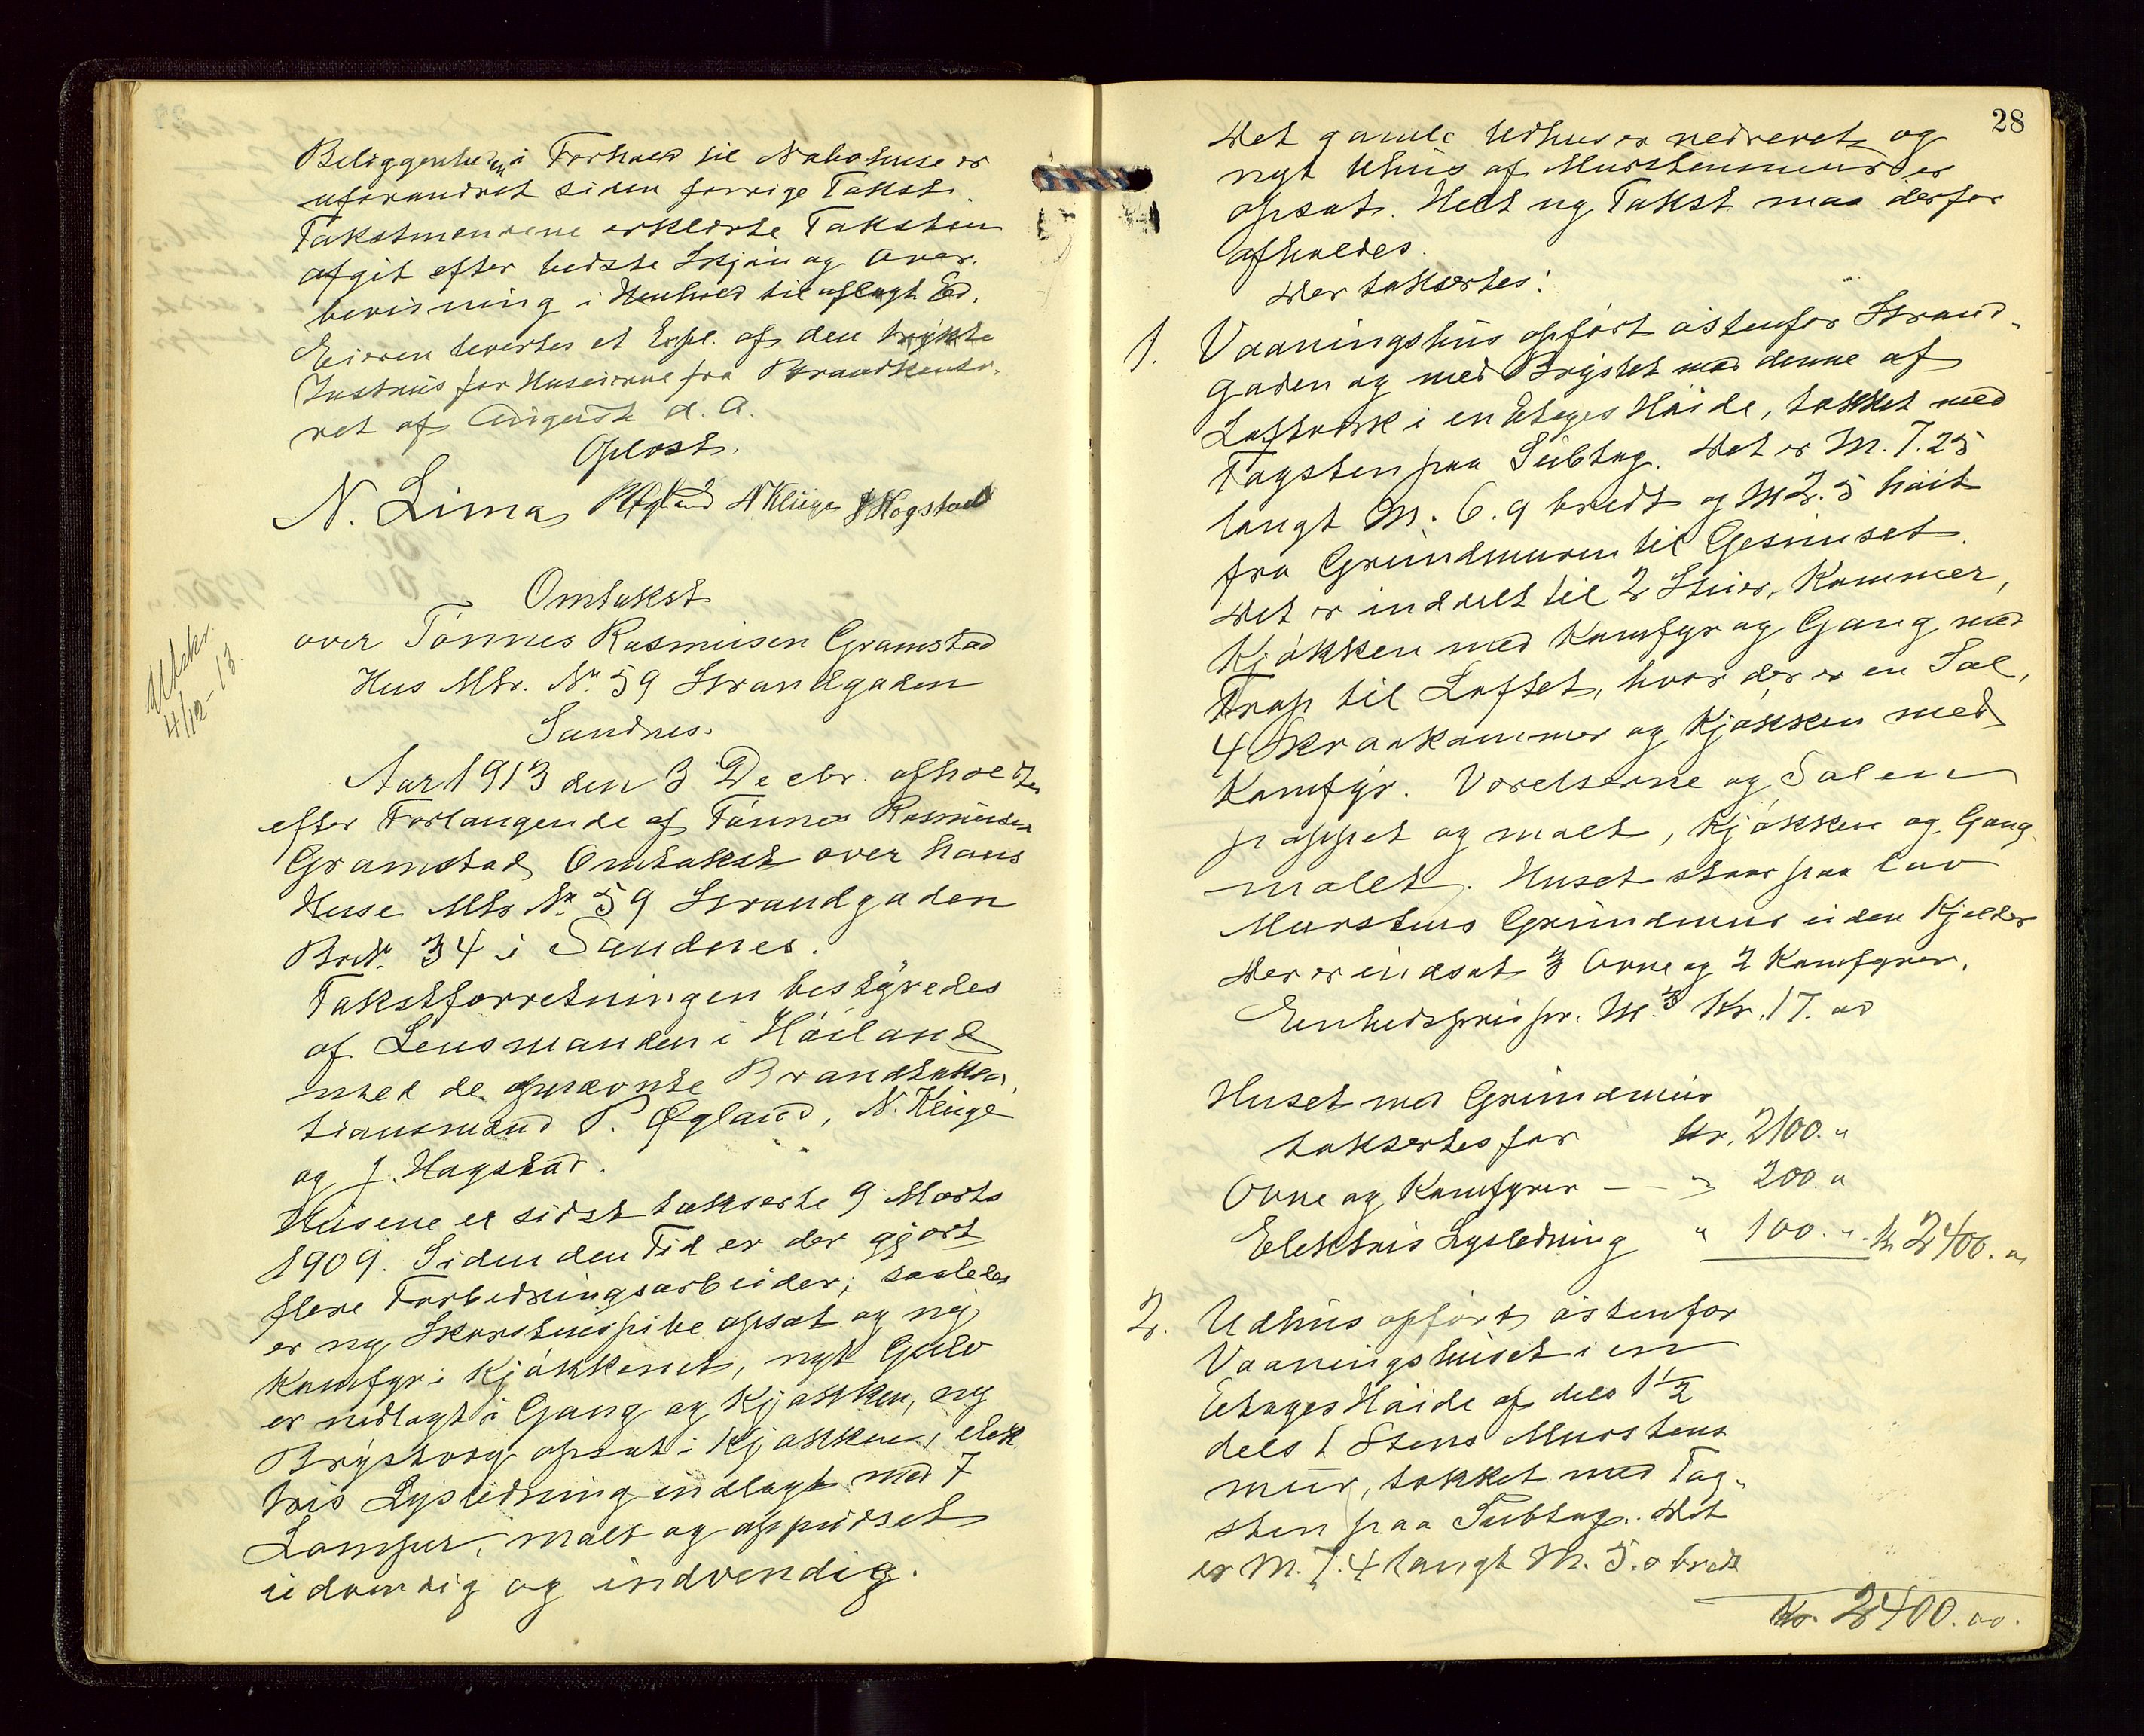 Beliggenheden i Forhold til Nabohuse er
uforandret siden forrige Takst.
Takstmændene erklærte Taksten
afgit efter bedste Skjøn og Over-
bevisning i Henhold til aflagt Ed.
Eieren levertes et Expl. af den trykte
Instrux for Huseierne fra Brandkonto-
ret af August d. A.
Oplæst.
N. Lima P Øgland N Kluge J Hogstad
Omtakst
over Tønnes Rasmusen Gramstad
Hus Mtr. No 59 Strandgaden
Sandnes.
Utskr.
4/12-13.
Aar 1913 den 3 Decbr. afholdtes
efter Forlangende af Tønnes Rasmusen
Gramstad Omtakst over hans
Huse Mtr No 59 Strandgaden
BrN. 34 i Sandnes.
Takstforretningen bestyredes
af Lensmanden i Høiland
med de opnævnte Brandtaksa-
tionsmænd P. Øgland, N. Kluge
og J. Hagstad.
Husene er sidst takserte 9 Marts
1909. Siden den Tid er der gjort
flere Forbedringsarbeider, saaledes
er ny Skorstenspibe opsat og ny
Komfyr i Kjøkkenet, nyt Gulv
er nedlagt i Gang og Kjøkken, ny
Brystvæg opsat i Kjøkken, elek
tris Lysledning indlagt med 7
Lamper, malt og oppudset
udvendig og indvendig.
28
Det gamle Udhus er nedrevet og
nyt Uhus af Murstensmur er
opsat. Helt ny Takst maa derfor
afholdes.
Der taksertes:
1. Vaaningshus opført østenfor Strand-
gaden og med Brystet mod denne af
Loftværk i en Etages Høide, tækket med
Tagsten paa Subtag. Det er M. 7.25
langt M. 6.9 bredt og M 2.5 høit
fra Grundmuren til Gesimset.
Det er inddelt til 2 Stuer, Kammer,
Kjøkken med Komfyr og Gang med
Trap til Loftet, hvor der er en Sal,
4 Skraakammer og Kjøkken med
Komfyr. Værelserne og Salen
pappet og malt, Kjøkken og Gang
malet. Huset staar paa lav
Murstens Grundmur uden Kjelder
Der er indsat 3 Ovne og 2 Komfyrer.
Enhedspris pr. M.3 Kr. 17.00
Huset med Grundmur
taksertes for Kr. 2100. "
Ovne og Komfyrer — " 200. "
Elektris Lysledning " 100. " Kr 2400. 00
2. Udhus opført østenfor
Vaaningshuset i en
Etages Høide af dels 1 1/2
dels 1 Stens Murstens
mur, tækket med Tag-
sten paa Subtag. Det
er M. 7.4 langt M. 5.0 bredt
Kr. 2400.00.